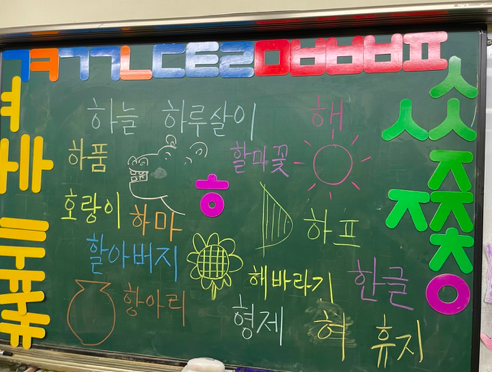 ㄱㅋㄲㄴㄷㅌㄹㅁㅂㅃㅍ
ㅅ
ㅅㅆ
ㅈ
ㅈㅉ
ㅊ
ㅇ
하늘 하루살이 해
하품 할미꽃
ㅎ
호랑이 하마 하프
할아버지
해바라기 한글
항아리
형제 혀 휴지